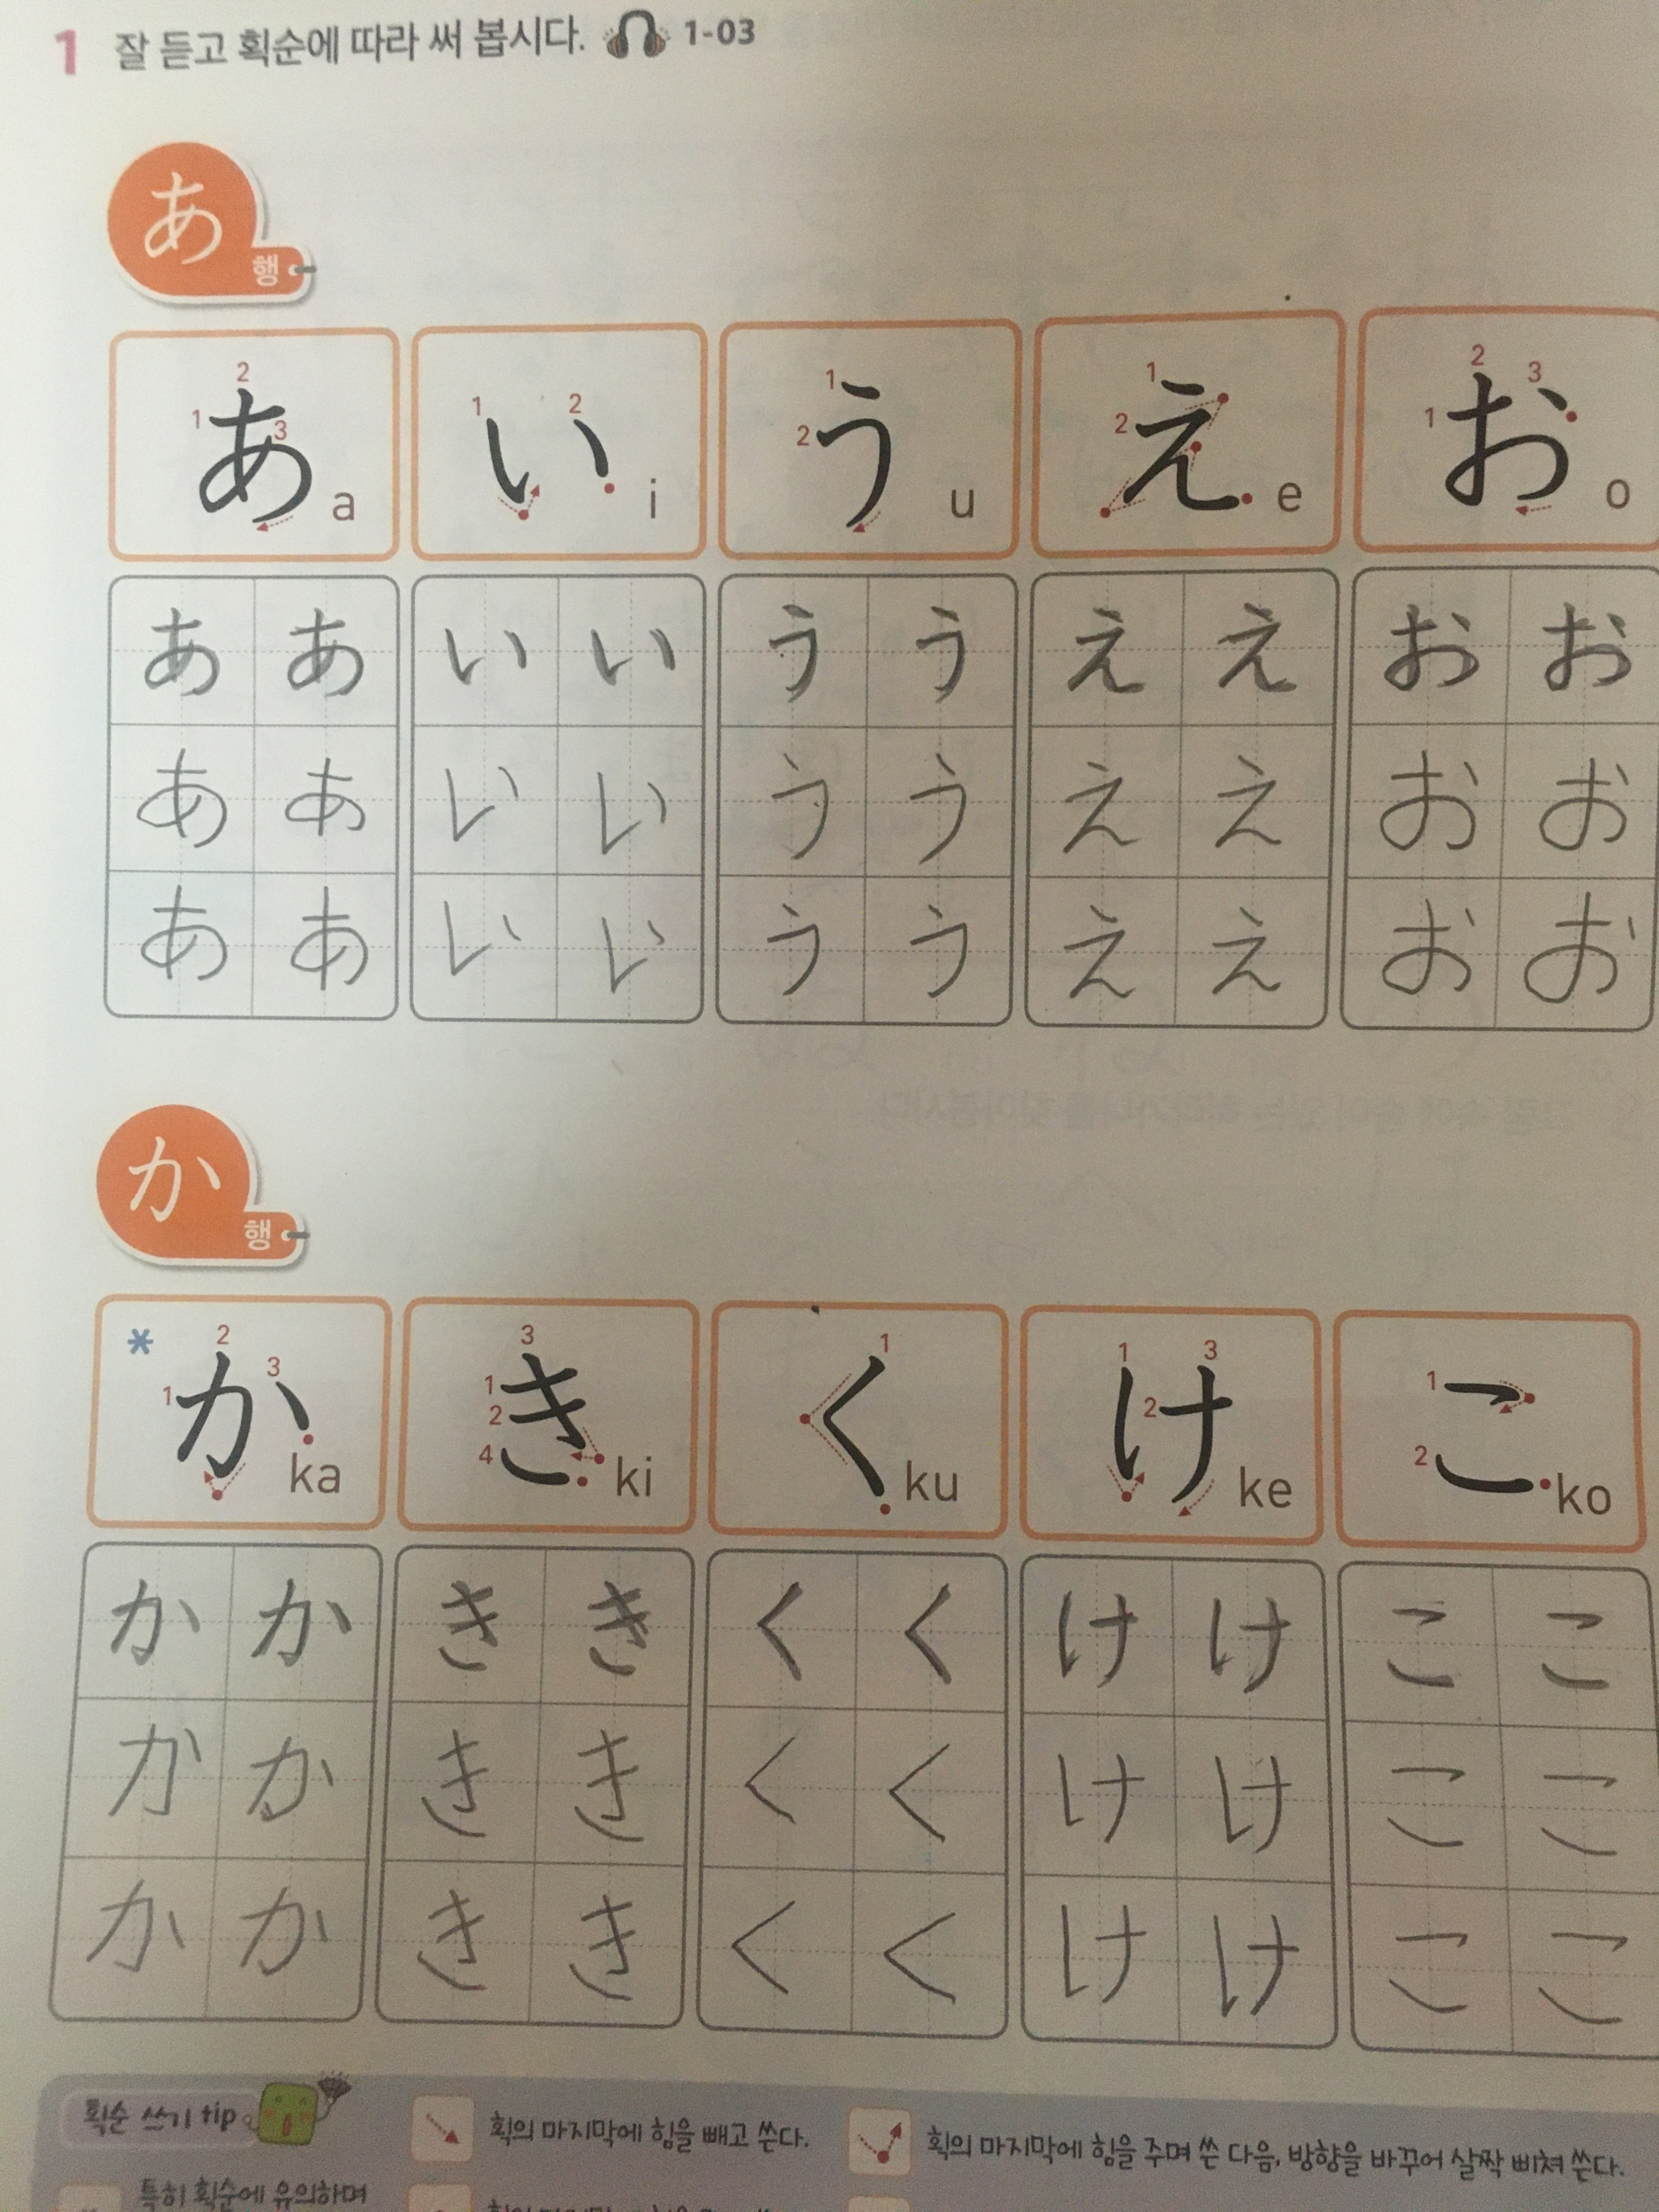 1 잘 듣고 획순에 따라 써 봅시다. 1-03
あ 행
1 2 3 あ a 1 2 い i 1 2 う u 1 2 え e 1 2 3 お o
ああ いい うう ええ おお
ああ いい うう ええ おお
ああ いい うう ええ おお
か 행
* 1 2 3 か ka 1 2 3 4 き ki 1 く ku 1 2 3 け ke 1 2 こ ko
かか きき くく けけ ここ
かか きき くく けけ ここ
かか きき くく けけ ここ
획순 쓰기 tip 획의 마지막에 힘을 빼고 쓴다. 획의 마지막에 힘을 주며 쓴 다음, 방향을 바꾸어 살짝 삐쳐 쓴다.
특히 획순에 유의하며